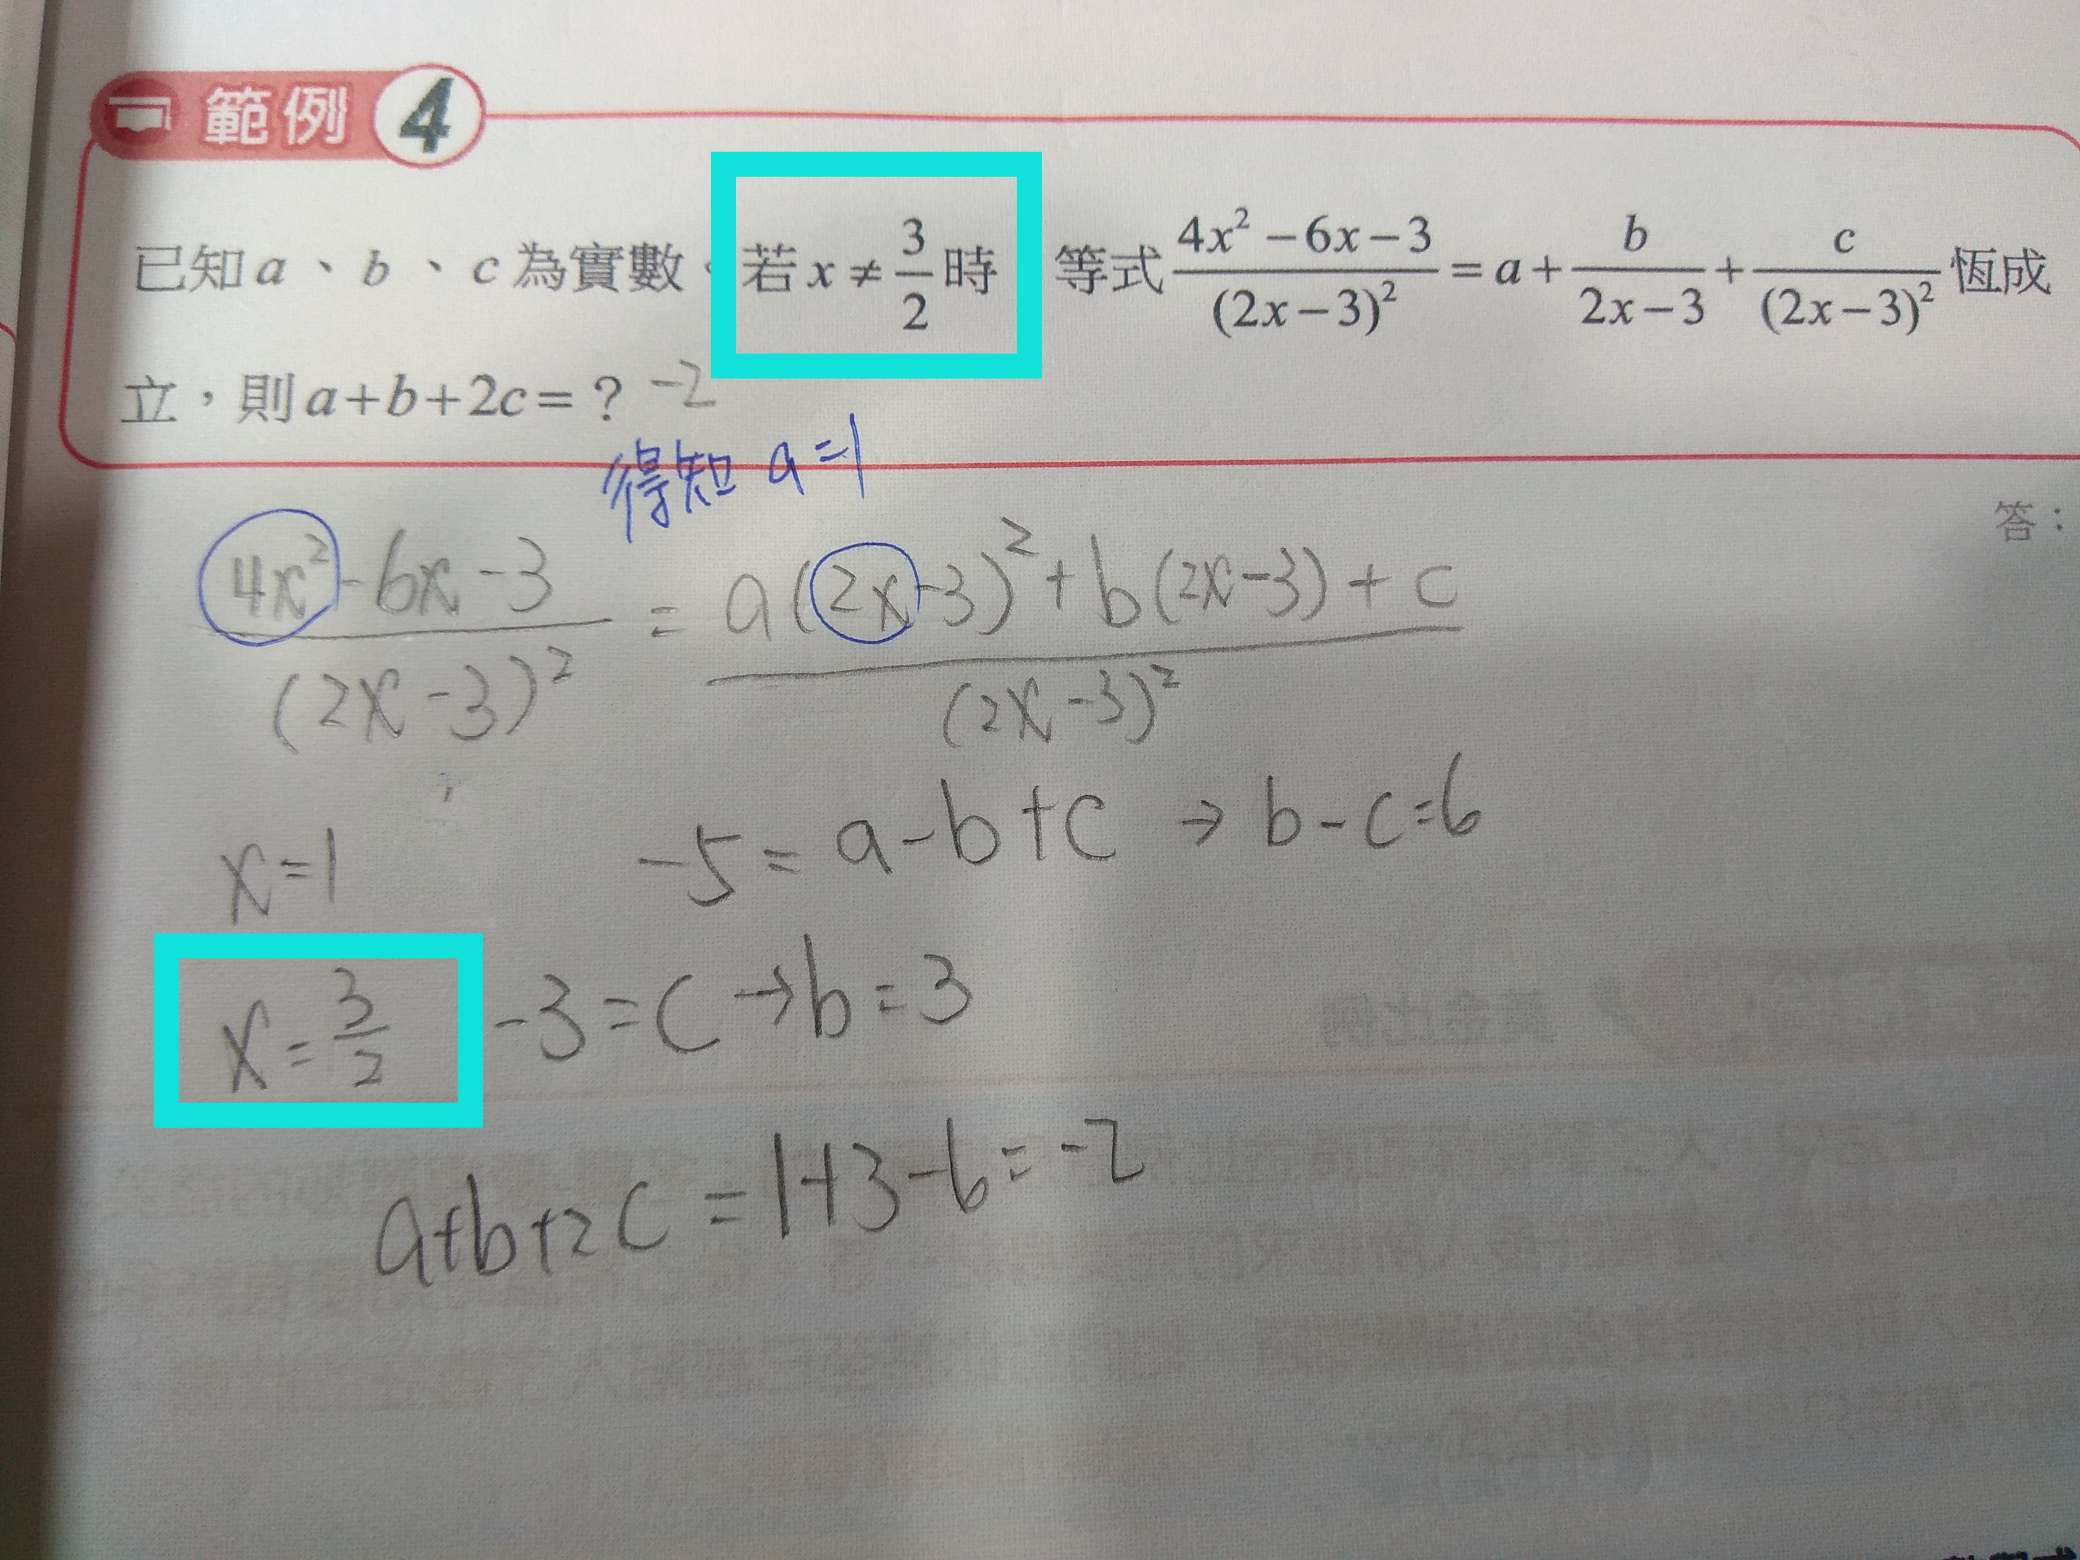 範例 4
已知a、b、c為實數。若x≠3/2時 等式(4x²-6x-3)/(2x-3)²=a+b/(2x-3)+c/(2x-3)²恆成
立，則a+b+2c=？ -2
得知 a=1
答：
(4x²-6x-3)/(2x-3)² = (a(2x-3)²+b(2x-3)+c)/(2x-3)²
x=1 -5=a-b+c → b-c=6
x=3/2 -3=c→b=3
a+b+2c=1+3-6=-2